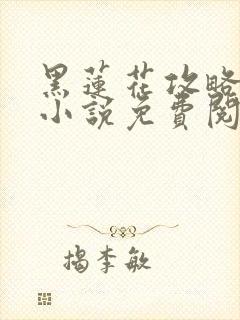 黑蓮花攻略
小說免費閱
揭李敏